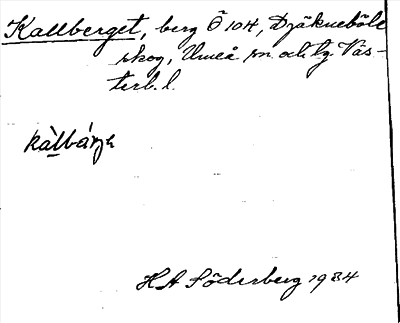 Kallberget, berg Ö 104, Djäkneböle
skog, Umeå sn och tg. Väs-
terb. l.
kàlbárje
H A Söderberg 1934